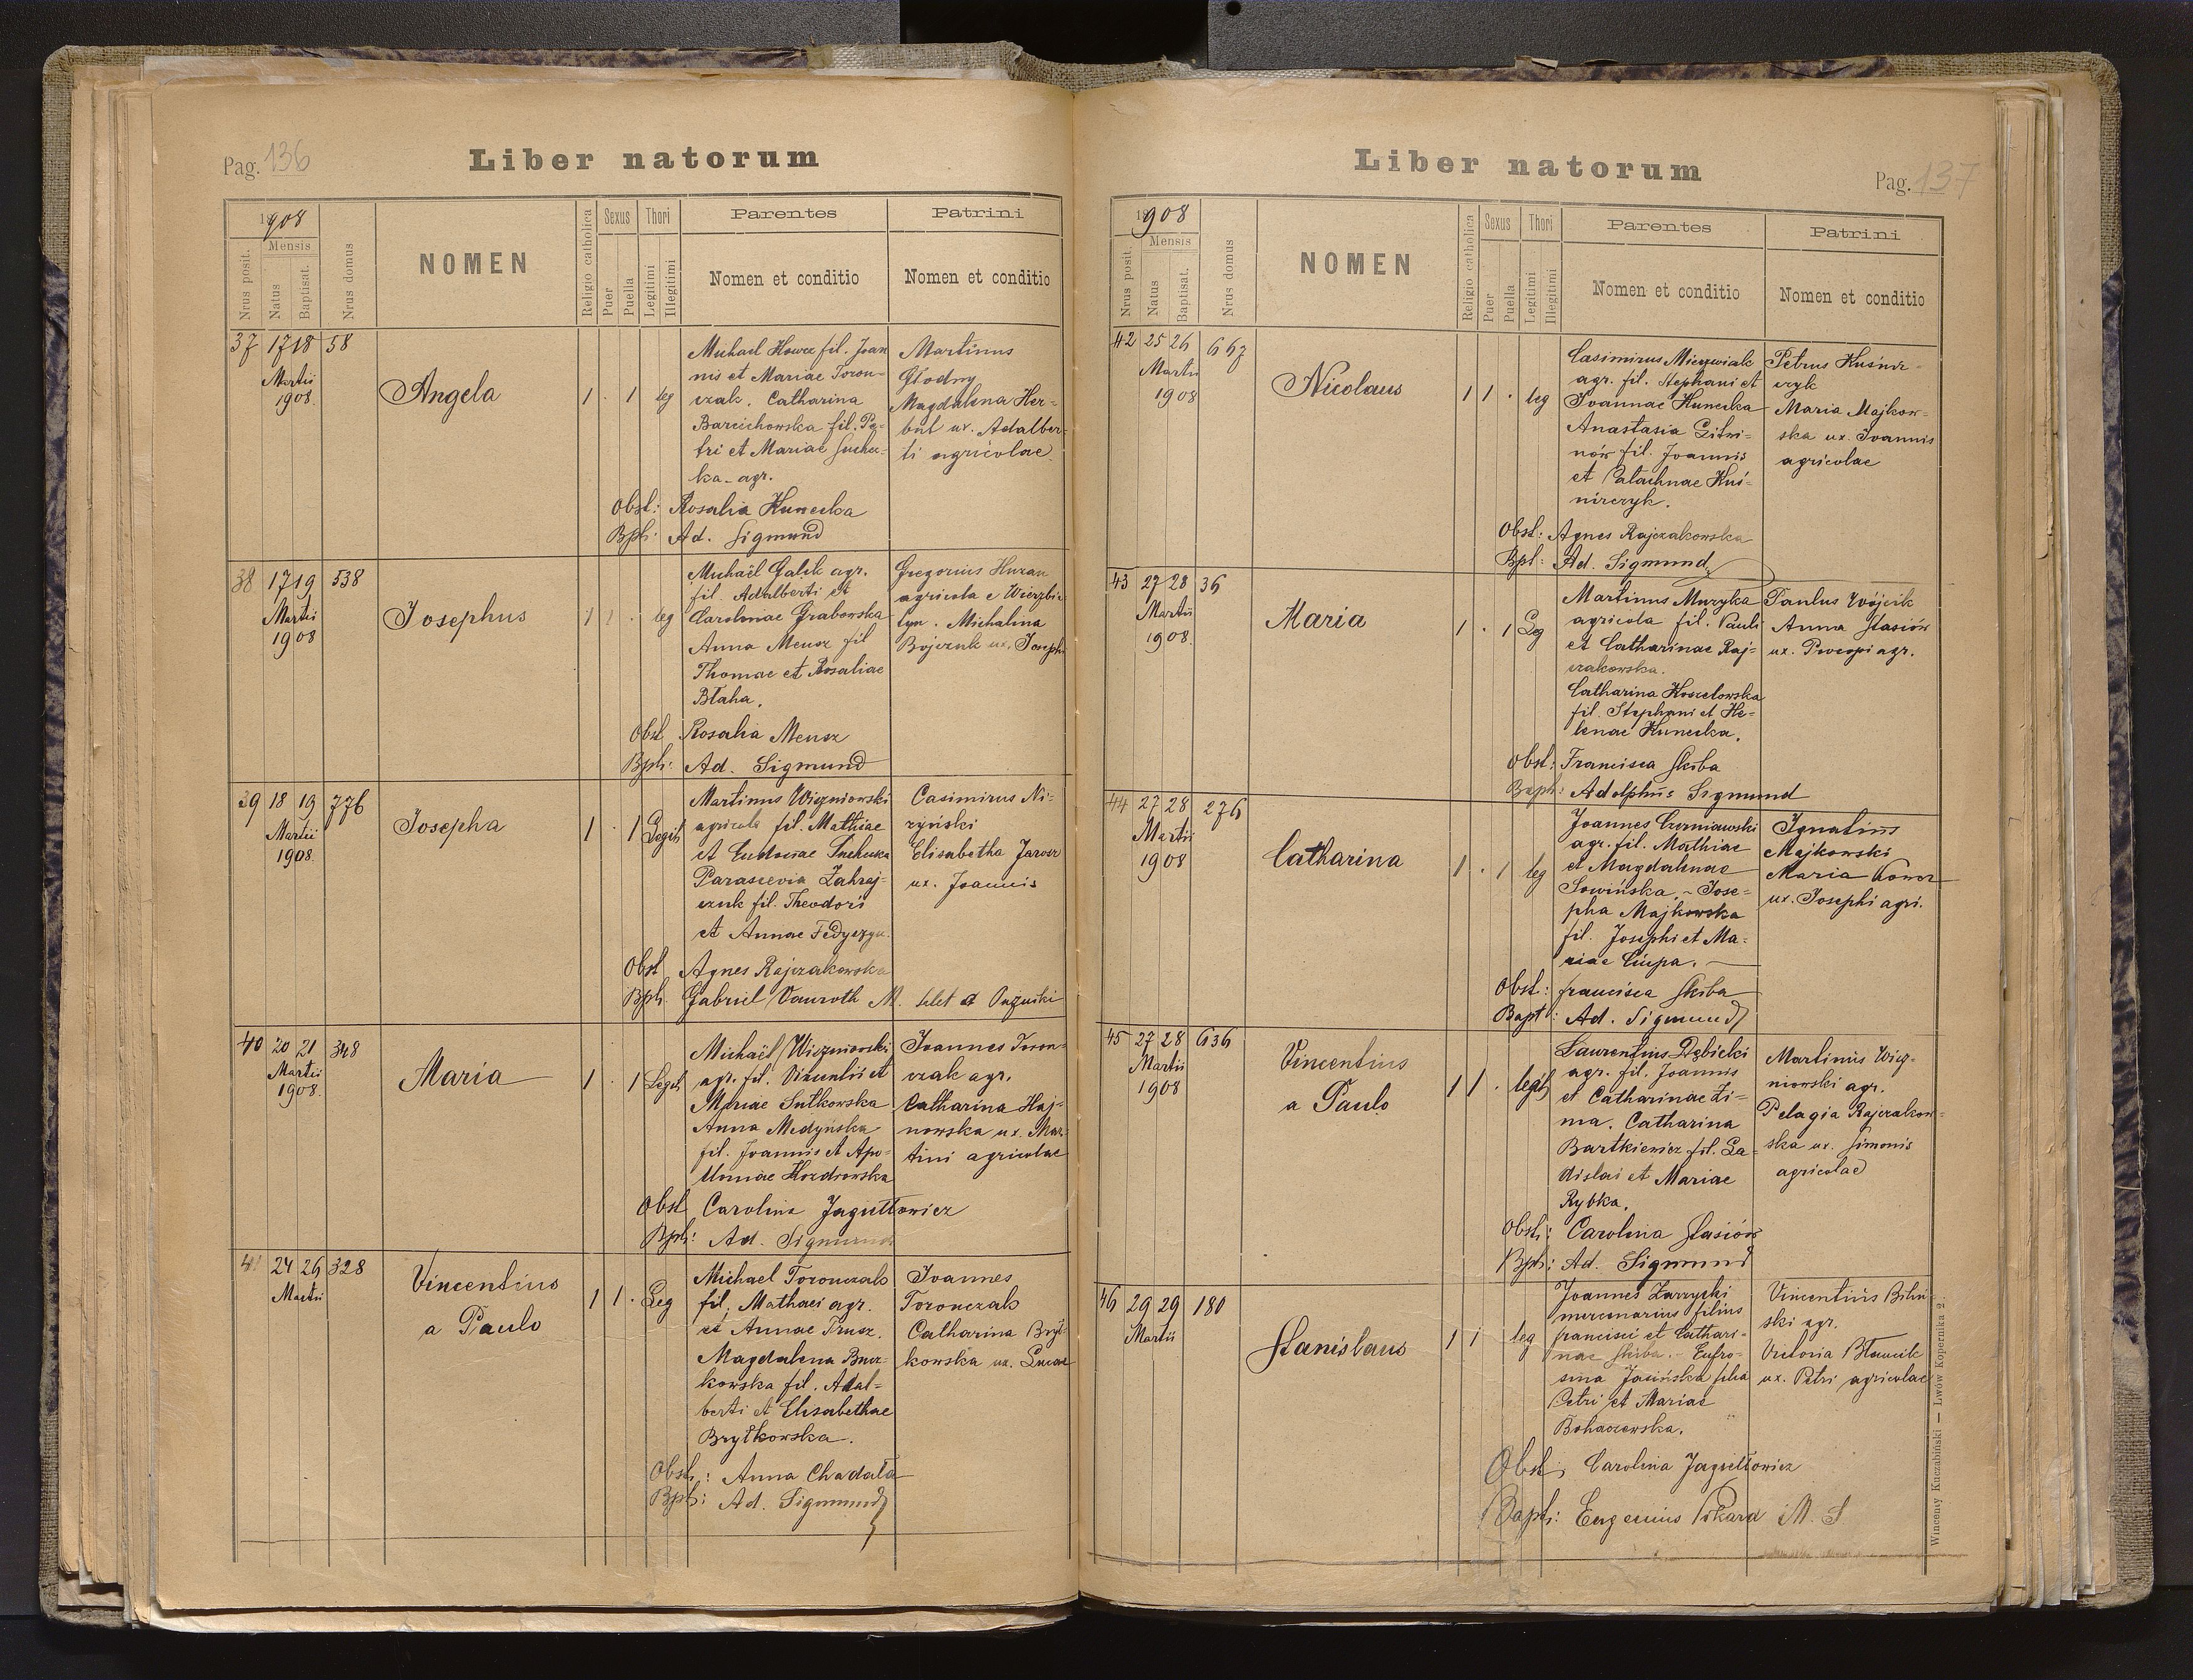 Pag. 136
Liber natorum
1908
Nrus posit.
Mensis
Natus
Baptisat.
Nrus domus
NOMEN
Religio catholica
Sexus
Puer
Puella
Thori
Legitimi
Illegitimi
Parentes
Nomen et conditio
Patrini
Nomen et conditio
37 17 18 58
Martii
1908.
Angela
1 . 1 leg
Michael Howcz fil. Joan
nis et Mariae Toron-
czak. Catharina
Barcichowska fil. Pe-
tri et Mariae Suchec-
ka agr.
Martinus
Głodny
Magdalena Her-
but ux. Adalber-
ti agricolae
Obst: Rosalia Kunecka
Bpt: Ad. Sigmund
38 17 19 538
Martii
1908
Josephus
1 1 . leg
Michaël Galik agr.
fil. Adalberti et
Carolinae Grabowska
Anna Meusz fil
Thomae et Rosaliae
Błaha.
Gregorius Huzan
agricola e Wierzbo
Michalina
Bojczuk ux. Josephi
Obst Rosalia Meusz
Bpt: Ad. Sigmund
39 18 19 776
Martii
1908.
Josepha
1 . 1 Legit
Martinus Wiszniowski
agricola fil. Mathiae
et Eudoxiae Suchecka
Parascevia Zahraj-
czuk fil. Theodori
et Annae Fedyczyn.
Casimirus Ni-
zyński
Elisabetha Jarosz
ux. Joannis
Obst Agnes Rajczakowska
Bpt. Gabriel Vauroth M.
40 20 21 348
Martii
1908.
Maria
1 . 1 Legit
Michaël Wiszniowski
agr. fil. Vincentii et
Mariae Sutkowska
Anna Medyńska
fil. Joannis et Apo-
lloniae Hozdrowska
Joannes Toron-
czak agr.
Catharina Haj-
nowska ux. Mar-
tini agricolae
Obst Carolina Jagiełłowicz
Bpt: Ad. Sigmund
41 24 26 328
Martii
Vincentius
a Paulo
1 1 . Leg
Michael Toronczak
fil. Mathaei agr.
et Annae Trusz.
Magdalena Bucz-
kowska fil. Adal-
berti et Elisabethae
Brytkowska.
Joannes
Toronczak
Catharina Bryt-
kowska ux. Lucae
Obst: Anna Chadała
Bpt: Ad. Sigmund
Liber natorum
Pag. 137
1908
Nrus posit.
Mensis
Natus
Baptisat.
Nrus domus
NOMEN
Religio catholica
Sexus
Puer
Puella
Thori
Legitimi
Illegitimi
Parentes
Nomen et conditio
Patrini
Nomen et conditio
42 25 26 667
Martii
1908
Nicolaus
1 1 . leg
Casimirus Mierzwiak
agr. fil. Stephani et
Joannae Kunecka
Anastasia Litwi-
nów fil. Joannis
et Palachnae Kuś-
nirczyk.
Petrus Kuśnir-
czyk
Maria Majkow-
ska ux. Joannis
agricolae
Obst: Agnes Rajczakowska
Bpt: Ad. Sigmund
43 27 28 36
Martii
1908.
Maria
1 . 1 Leg
Martinus Muzyka
agricola fil. Pauli
et Catharinae Raj-
czakowska.
Catharina Koszelowska
fil. Stephani et He-
lenae Kunecka.
Paulus Wójcik
Anna Stasiów
ux. Procopi agr.
Obst: Francisca Skiba
Bapt: Adolphus Sigmund
44 27 28 276
Martii
1908
Catharina
1 . 1 leg
Joannes Czerniawski
agr. fil. Mathiae
et Magdalenae
Sowińska. - Jose-
pha Majkowska
fil. Josephi et Ma-
riae Ciupa.
Ignatius
Majkowski
Maria Howcz
ux. Josephi agri.
Obst: Francisca Skiba
Bapt: Ad. Sigmund
45 27 28 636
Martii
1908
Vincentius
a Paulo
1 1 . legit
Laurentius Dębicki
agr. fil. Joannis
et Catharinae Zi-
ma. Catharina
Bartkiewicz fil. La-
dislai et Mariae
Rybka.
Martinus Wisz-
niowski agr.
Pelagia Rajczakow-
ska ux. Simonis
agricolae
Obst: Carolina Stasiów
Bpt: Ad. Sigmund
46 29 29 180
Martii
Stanislaus
1 1 leg
Joannes Zarzycki
mercenarius filius
Francisci et Cathari-
nae Skiba. - Eufro-
sina Jasińska filia
Petri et Mariae
Bohaczewska.
Vincentius Biliń-
ski agr.
Victoria Błaucik
ux. Petri agricolae
Obst: Carolina Jagiełłowicz
Bapt: Eugenius Piskard M. S.
Wincenty Kuczabiński — Lwów Kopernika 2